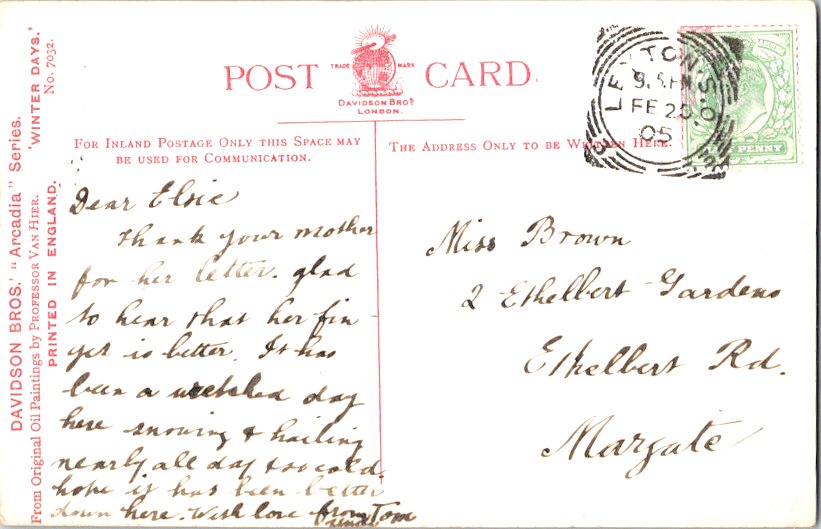 DAVIDSON BROS.' "Arcadia" Series.
From Original Oil Paintings by PROFESSOR VAN HIER. 'WINTER DAYS.'
PRINTED IN ENGLAND. No. 7032.
POST CARD.
TRADE MARK
DAVIDSON BROS
LONDON.
FOR INLAND POSTAGE ONLY THIS SPACE MAY
BE USED FOR COMMUNICATION.
THE ADDRESS ONLY TO BE WRITTEN HERE.
LEYTON S.O.
FE 20
05
PENNY
Dear Elsie
Thank your mother
for her letter. glad
to hear that her fin
ger is better. It has
been a wretched day
here snowing & hailing
nearly all day & so cold.
hope it has been better
down here. With love from Tom
Miss Brown
2 Ethelbert Gardens
Ethelbert Rd.
Margate